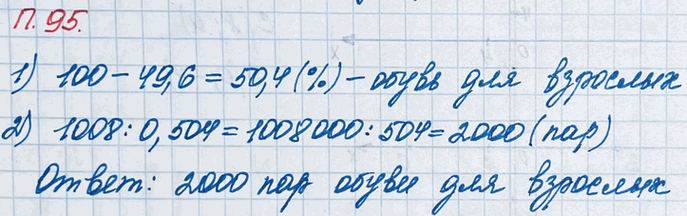 П. 95.
1) 100 - 49,6 = 50,4 (%) - обувь для взрослых
2) 1008 : 0,504 = 1008000 : 504 = 2000 (пар)
Ответ: 2000 пар обуви для взрослых